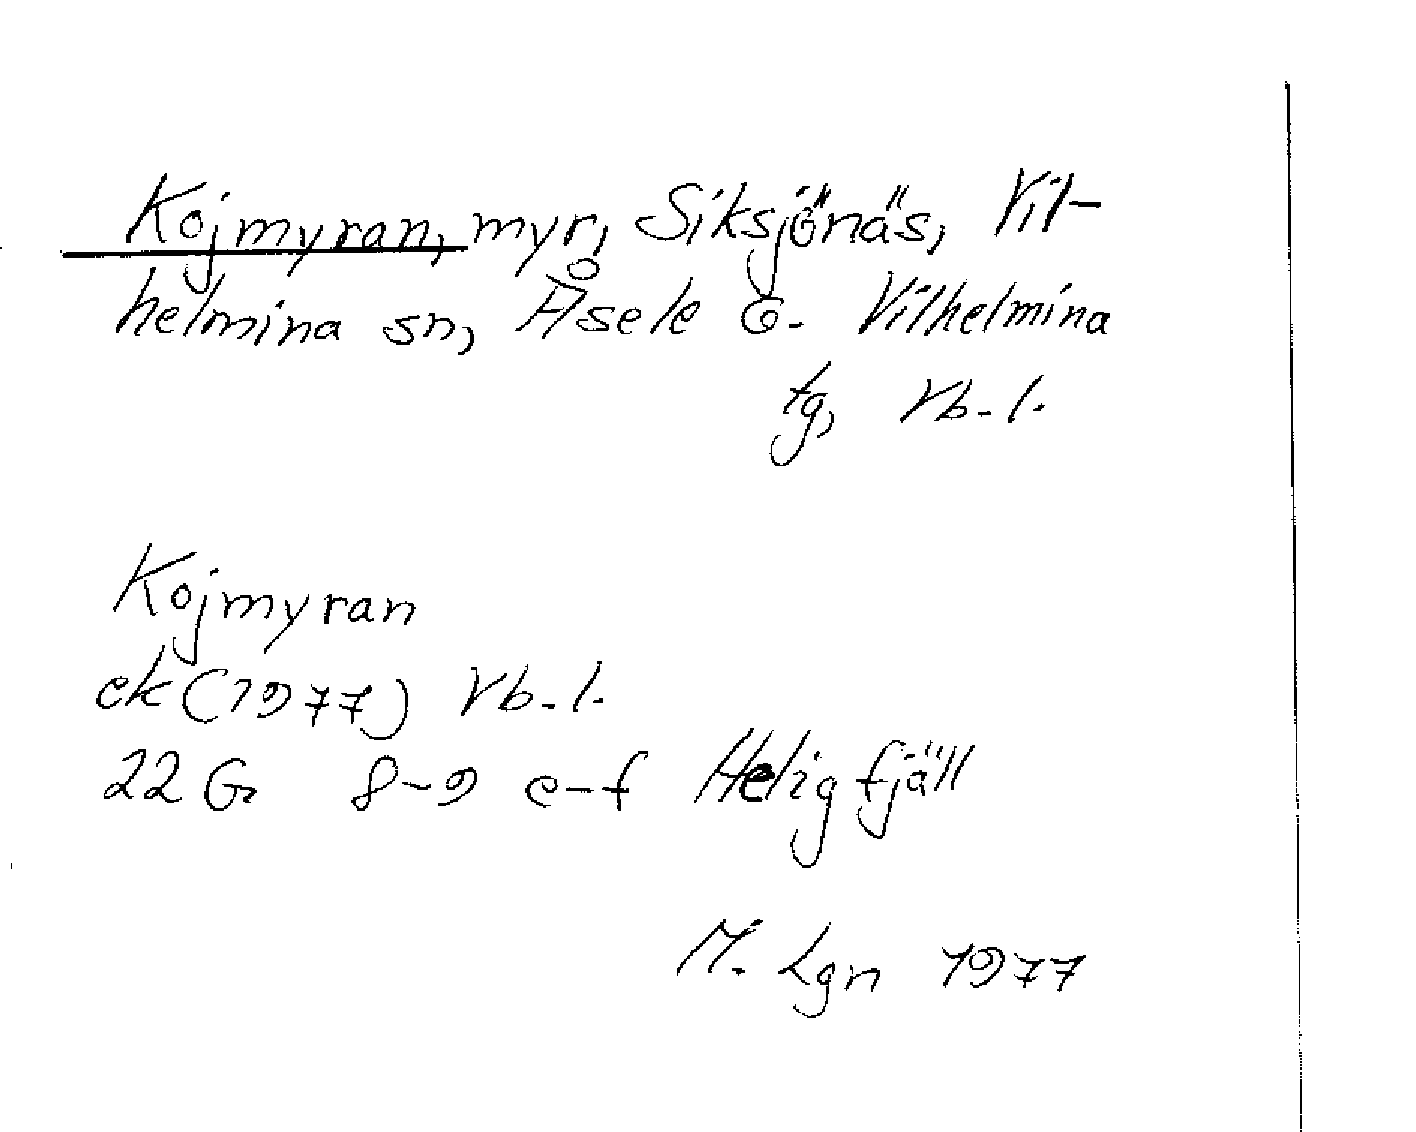 Kojmyran, myr, Siksjönäs, Vil-
helmina sn, Åsele o. Vilhelmina
tg, Vb. l.
Kojmyran
ek (1977) Vb. l.
22 G 8-9 e-f Heligfjäll
M. Lgn 1977